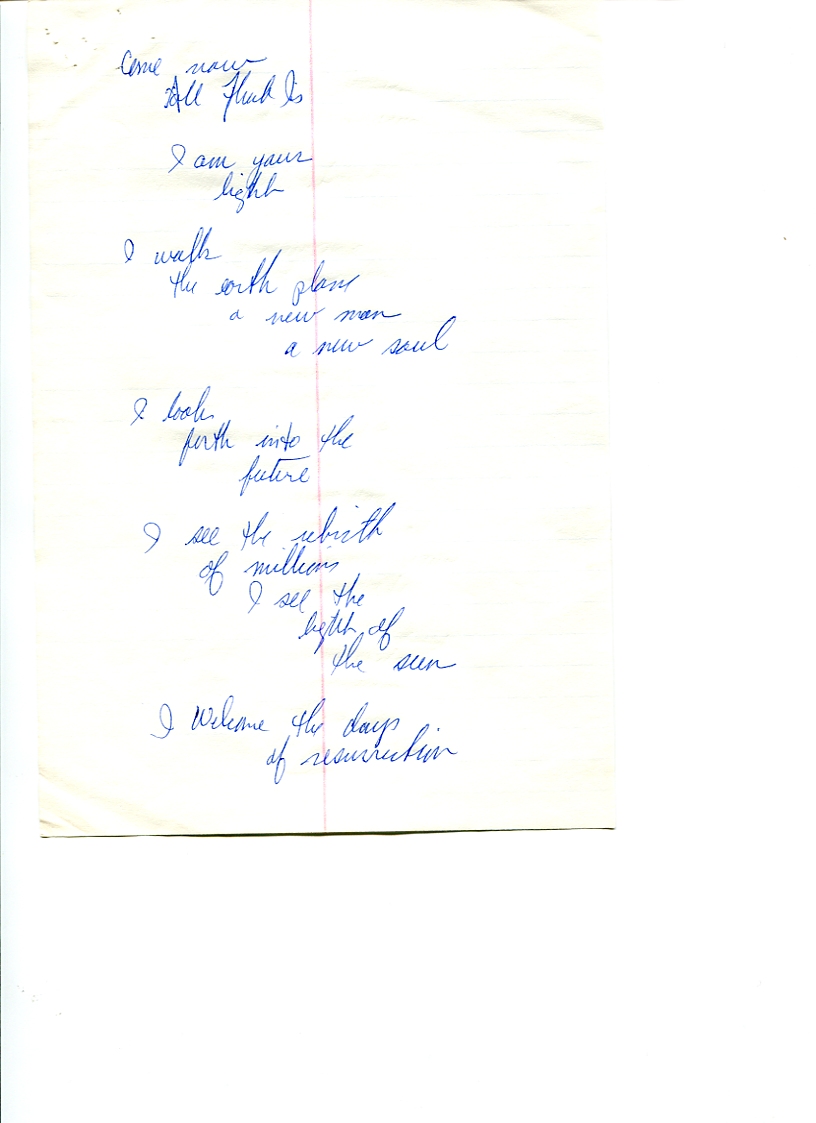 Come now
All That Is
I am your
light
I walk
the earth plane
a new man
a new soul
I look
forth into the
future
I see the rebirth
of millions
I see the
light of
the sun
I Welcome the days
of resurrection